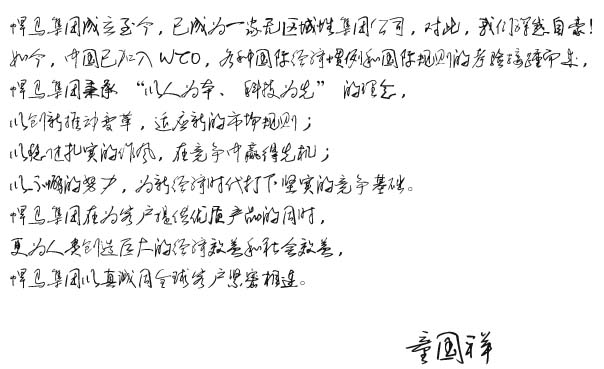 悍马集团成立至今，已成为一家无区域性集团公司，对此，我们深感自豪！
如今，中国已加入WTO，各种国际经济惯例和国际规则的考验接踵而来，
悍马集团秉承“以人为本、科技为先”的理念，
以创新推动变革，适应新的市场规则；
以稳进扎实的作风，在竞争中赢得先机；
以不懈的努力，为新经济时代打下坚实的竞争基础。
悍马集团在为客户提供优质产品的同时，
更为人类创造巨大的经济效益和社会效益，
悍马集团以真诚同全球客户紧密相连。
童国祥